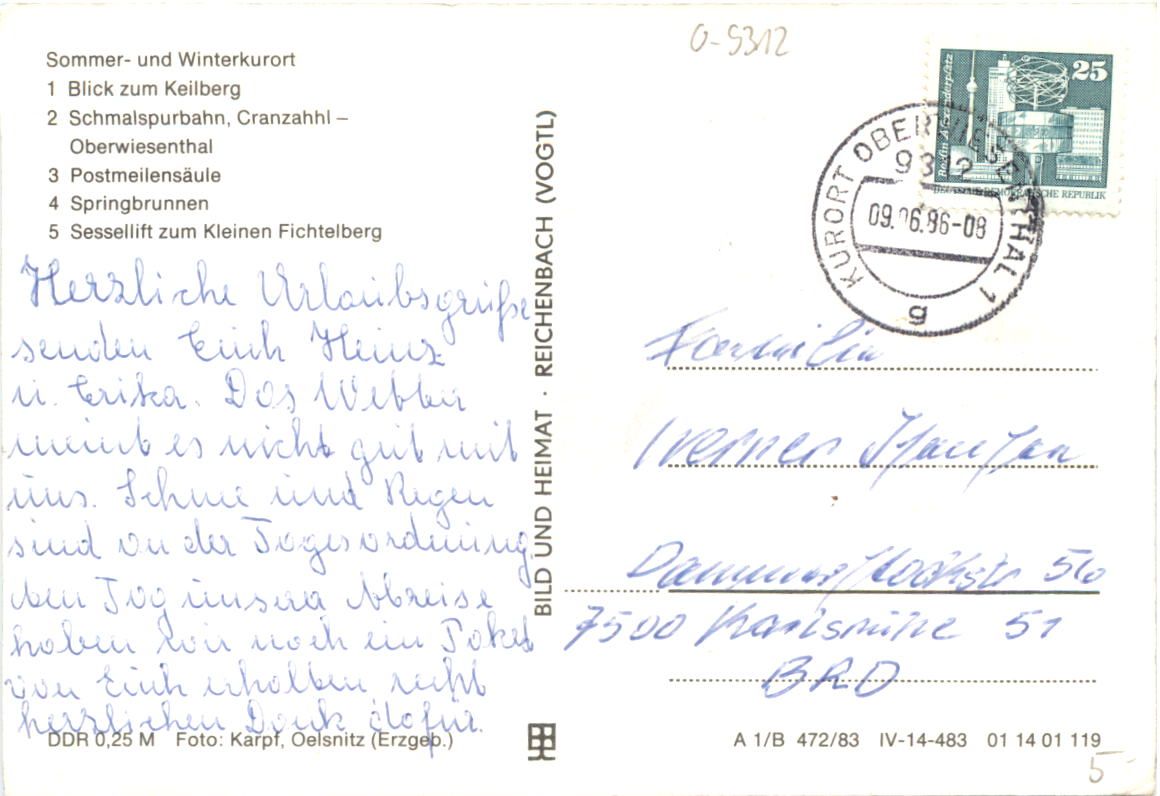 O-9312
Sommer- und Winterkurort
1 Blick zum Keilberg
2 Schmalspurbahn, Cranzahhl –
Oberwiesenthal
3 Postmeilensäule
4 Springbrunnen
5 Sessellift zum Kleinen Fichtelberg
Herzliche Urlaubsgrüße
senden Euch Heinz
u. Erika. Das Wetter
meint es nicht gut mit
uns. Schnee und Regen
sind an der Tagesordnung.
den Tag unserer Abreise
haben wir noch ein Paket
von Euch erhalten recht
herzlichen Dank dafür.
DDR 0,25 M Foto: Karpf, Oelsnitz (Erzgeb.)
BILD UND HEIMAT · REICHENBACH (VOGTL)
Berlin Alexanderplatz
25
DEUTSCHE DEMOKRATISCHE REPUBLIK
KURORT OBERWIESENTHAL 1
9312
09.06.86-08
g
Familie
Werner
7500 Karlsruhe 51
BRD
A 1/B 472/83 IV-14-483 01 14 01 119
5-